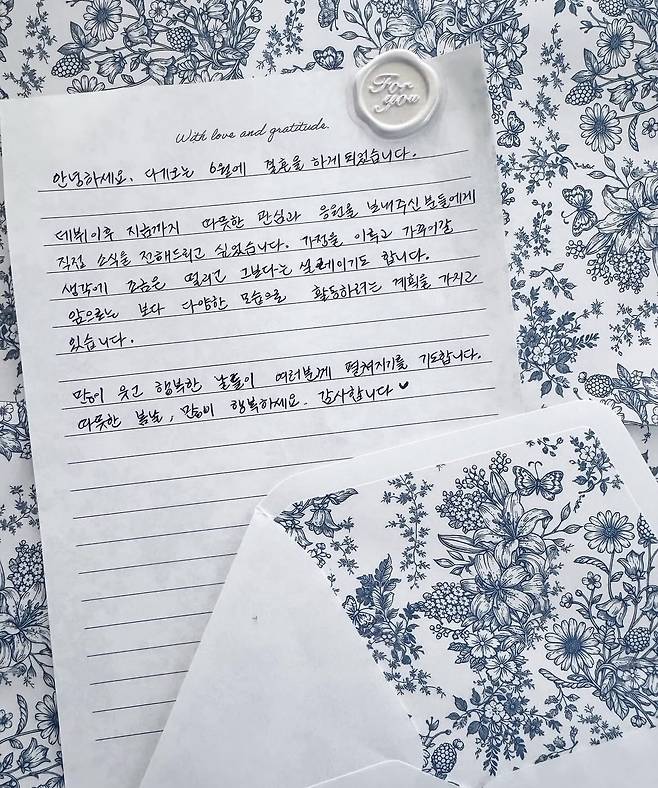 For
you
With love and gratitude.
안녕하세요. 다케오는 6월에 결혼을 하게 되었습니다.
데뷔이후 지금까지 따뜻한 관심과 응원을 보내주신 분들에게
직접 소식을 전해드리고 싶었습니다. 가정을 이루고 가꾸어갈
생각에 조금은 떨리고 그보다는 설레이기도 합니다.
앞으로는 보다 다양한 모습으로 활동하려는 계획을 가지고
있습니다.
많이 웃고 행복한 날들이 여러분께 펼쳐지기를 기도합니다.
따뜻한 봄날, 많이 행복하세요. 감사합니다